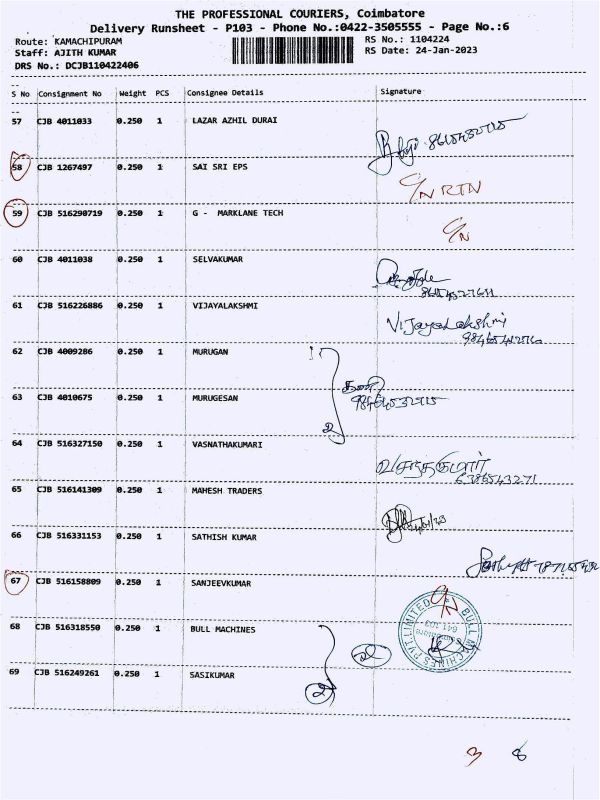 THE PROFESSIONAL COURIERS, Coimbatore
Delivery Runsheet - P103 - Phone No.:0422-3505555 - Page No.:6
Route: KAMACHIPURAM RS No.: 1104224
Staff: AJITH KUMAR RS Date: 24-Jan-2023
DRS No.: DCJB110422406
S No Consignment No Weight PCS Consignee Details Signature
57 CJB 4011033 0.250 1 LAZAR AZHIL DURAI
58 CJB 1267497 0.250 1 SAI SRI EPS C/N RTN
59 CJB 516290719 0.250 1 G - MARKLANE TECH C/N
60 CJB 4011038 0.250 1 SELVAKUMAR
61 CJB 516226886 0.250 1 VIJAYALAKSHMI Vijayalakshmi
62 CJB 4009286 0.250 1 MURUGAN
63 CJB 4010675 0.250 1 MURUGESAN
64 CJB 516327150 0.250 1 VASNATHAKUMARI
6386543271
65 CJB 516141309 0.250 1 MAHESH TRADERS
66 CJB 516331153 0.250 1 SATHISH KUMAR
67 CJB 516158809 0.250 1 SANJEEVKUMAR C/N
68 CJB 516318550 0.250 1 BULL MACHINES BULL MACHINES PVT LIMITED
69 CJB 516249261 0.250 1 SASIKUMAR
3 8